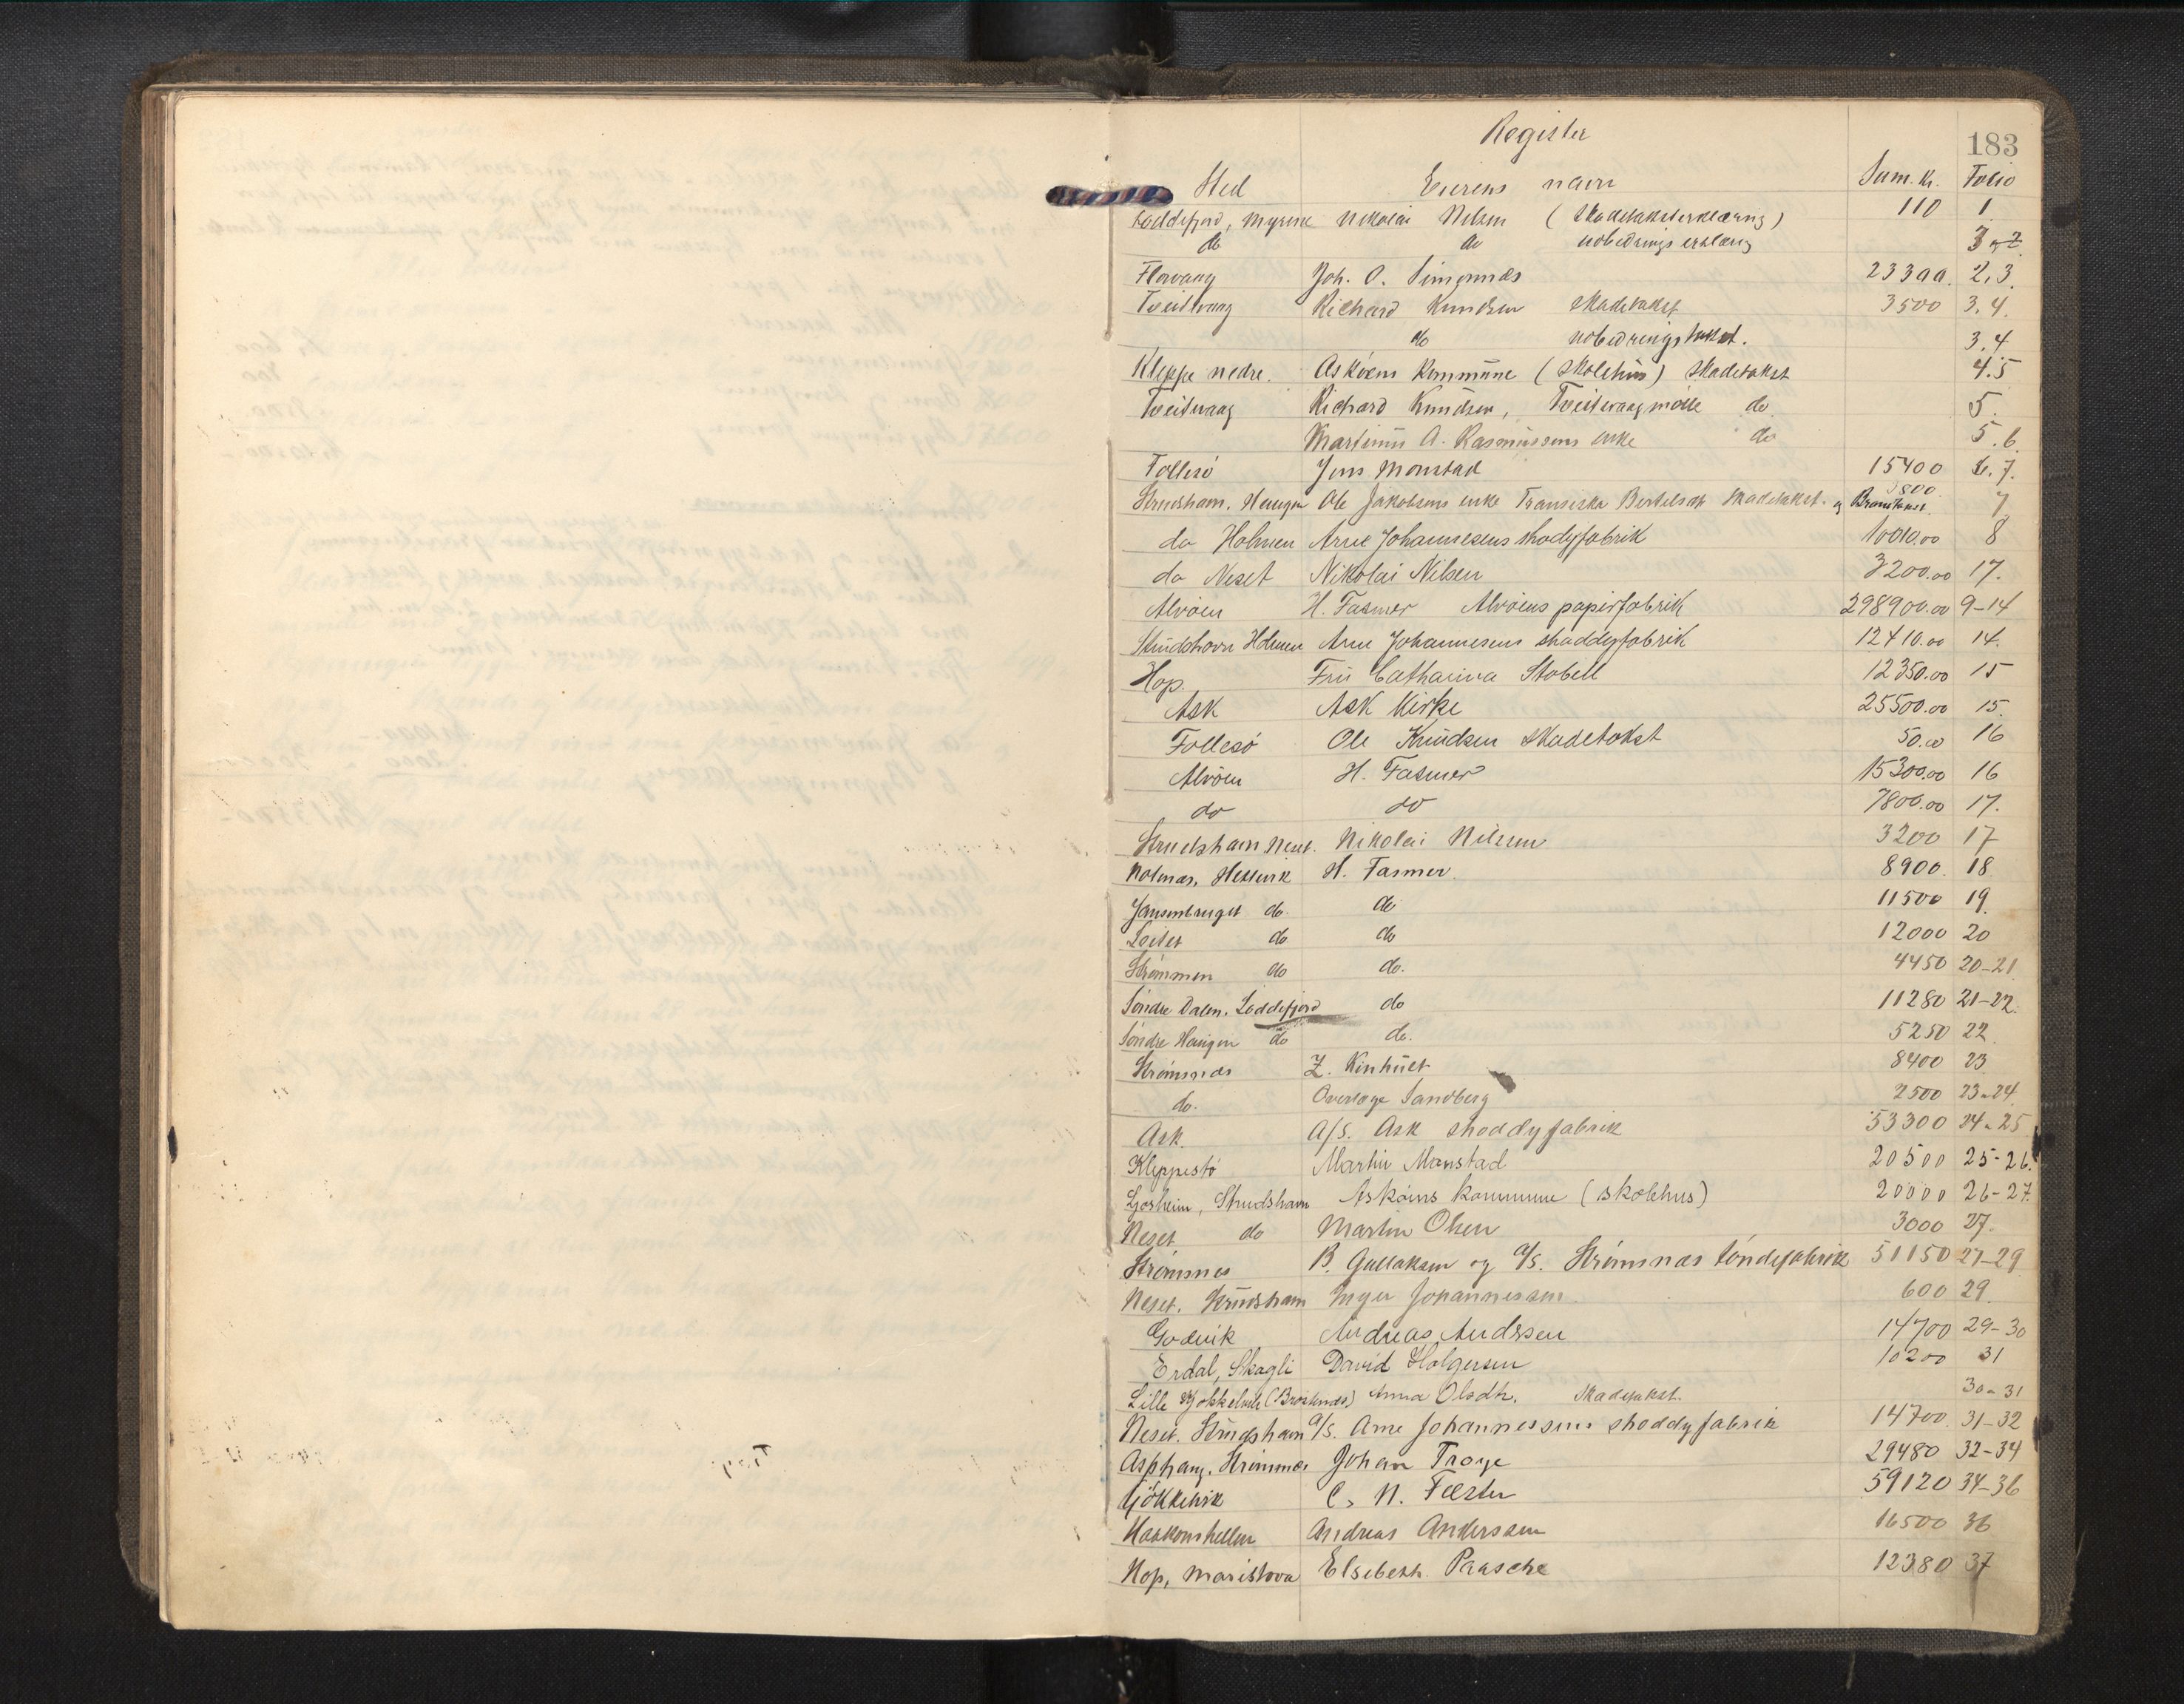 183
Register
Sted Eierens navn Sum. kr. Folio
Loddefjord, Myrene Nikolai Nilsen (Skadetaksterklæring) 110 1
do do utbedringserklæring 1 og 2
Florvaag Joh. O. Simonnæs 23300. 2,3.
Tveitvaag Richard Knudsen skadetakst 3500 3.4.
do utbedringstakst. 3.4
Kleppe nedre. Askøens kommune (skolehus) skadetakst 4.5
Tveitvaag Richard Knudsen, Tveitvaag mølle do. 5.
Martinus A. Rasmussens enke do 5.6
Follesø Jens Monstad 15400 6.7.
Strudsham. Haugen Ole Jakobsens enke Fransiska Bertelsdtr skadetakst. og Branntakst. 800 7
do Holmen Arne Johannesens shodyfabrik 10010.00 8
do Neset Nikolai Nilsen 3200.00 17.
Alvøen H. Fasmer Alvøens papirfabrik 298900.00 9-14
Strudshavn Holmen Arne Johannesens shoddyfabrik 12410.00 14.
Hop. Fru Catharina Stabell 12350.00 15
Ask Ask Kirke 25500.00 15.
Follesø Ole Knudsen skadetakst 50.00 16
Alvøen H. Fasmer 15300.00 16
do do 7800.00 17.
Strudshavn Neset. Nikolai Nilsen 3200 17
Holmen, Hetlevik H. Fasmer. 8900. 18
Jansenbruget do. do 11500 19.
Leitet do do 12000 20
Strømmen do do. 4450 20-21
Søndre Dalen. Loddefjord do 11280 21-22.
Søndre Haugen do do. 5250 22.
Strømsnes Z. Kinhult 8400 23
do. Overlæge Sandberg 2500 23-24.
Ask. A/S. Ask shoddyfabrik 53300 24-25
Kleppestø Martin Monstad 20500 25-26.
Ljosheim, Strudshavn Askøens kommune (skolehus) 20000 26-27.
Neset do Martin Olsen 3000 27.
Strømsnes B. Gullaksen og A/S. Strømsnæs tøndefabrik 51150 27-29
Neset. Strudsham Inger Johannessen 600 29.
Godvik Andreas Andersen 14700 29-30
Erdal, Skagli David Holgersen 10200 31
Lille Anna Olsdtr. Skadetakst. 30-31
Neset. Strudsham A/S. Arne Johannessens shoddyfabrik 14700. 31-32
Asphaug. Strømsnes Johan Troye 29480 32-34
Gjøkkelvik C. N. Fæster 59120 34-36
Haakonshellen Andreas Anderssen 16500 36
Hop, Maristova Elsebeth Paasche 12380 37